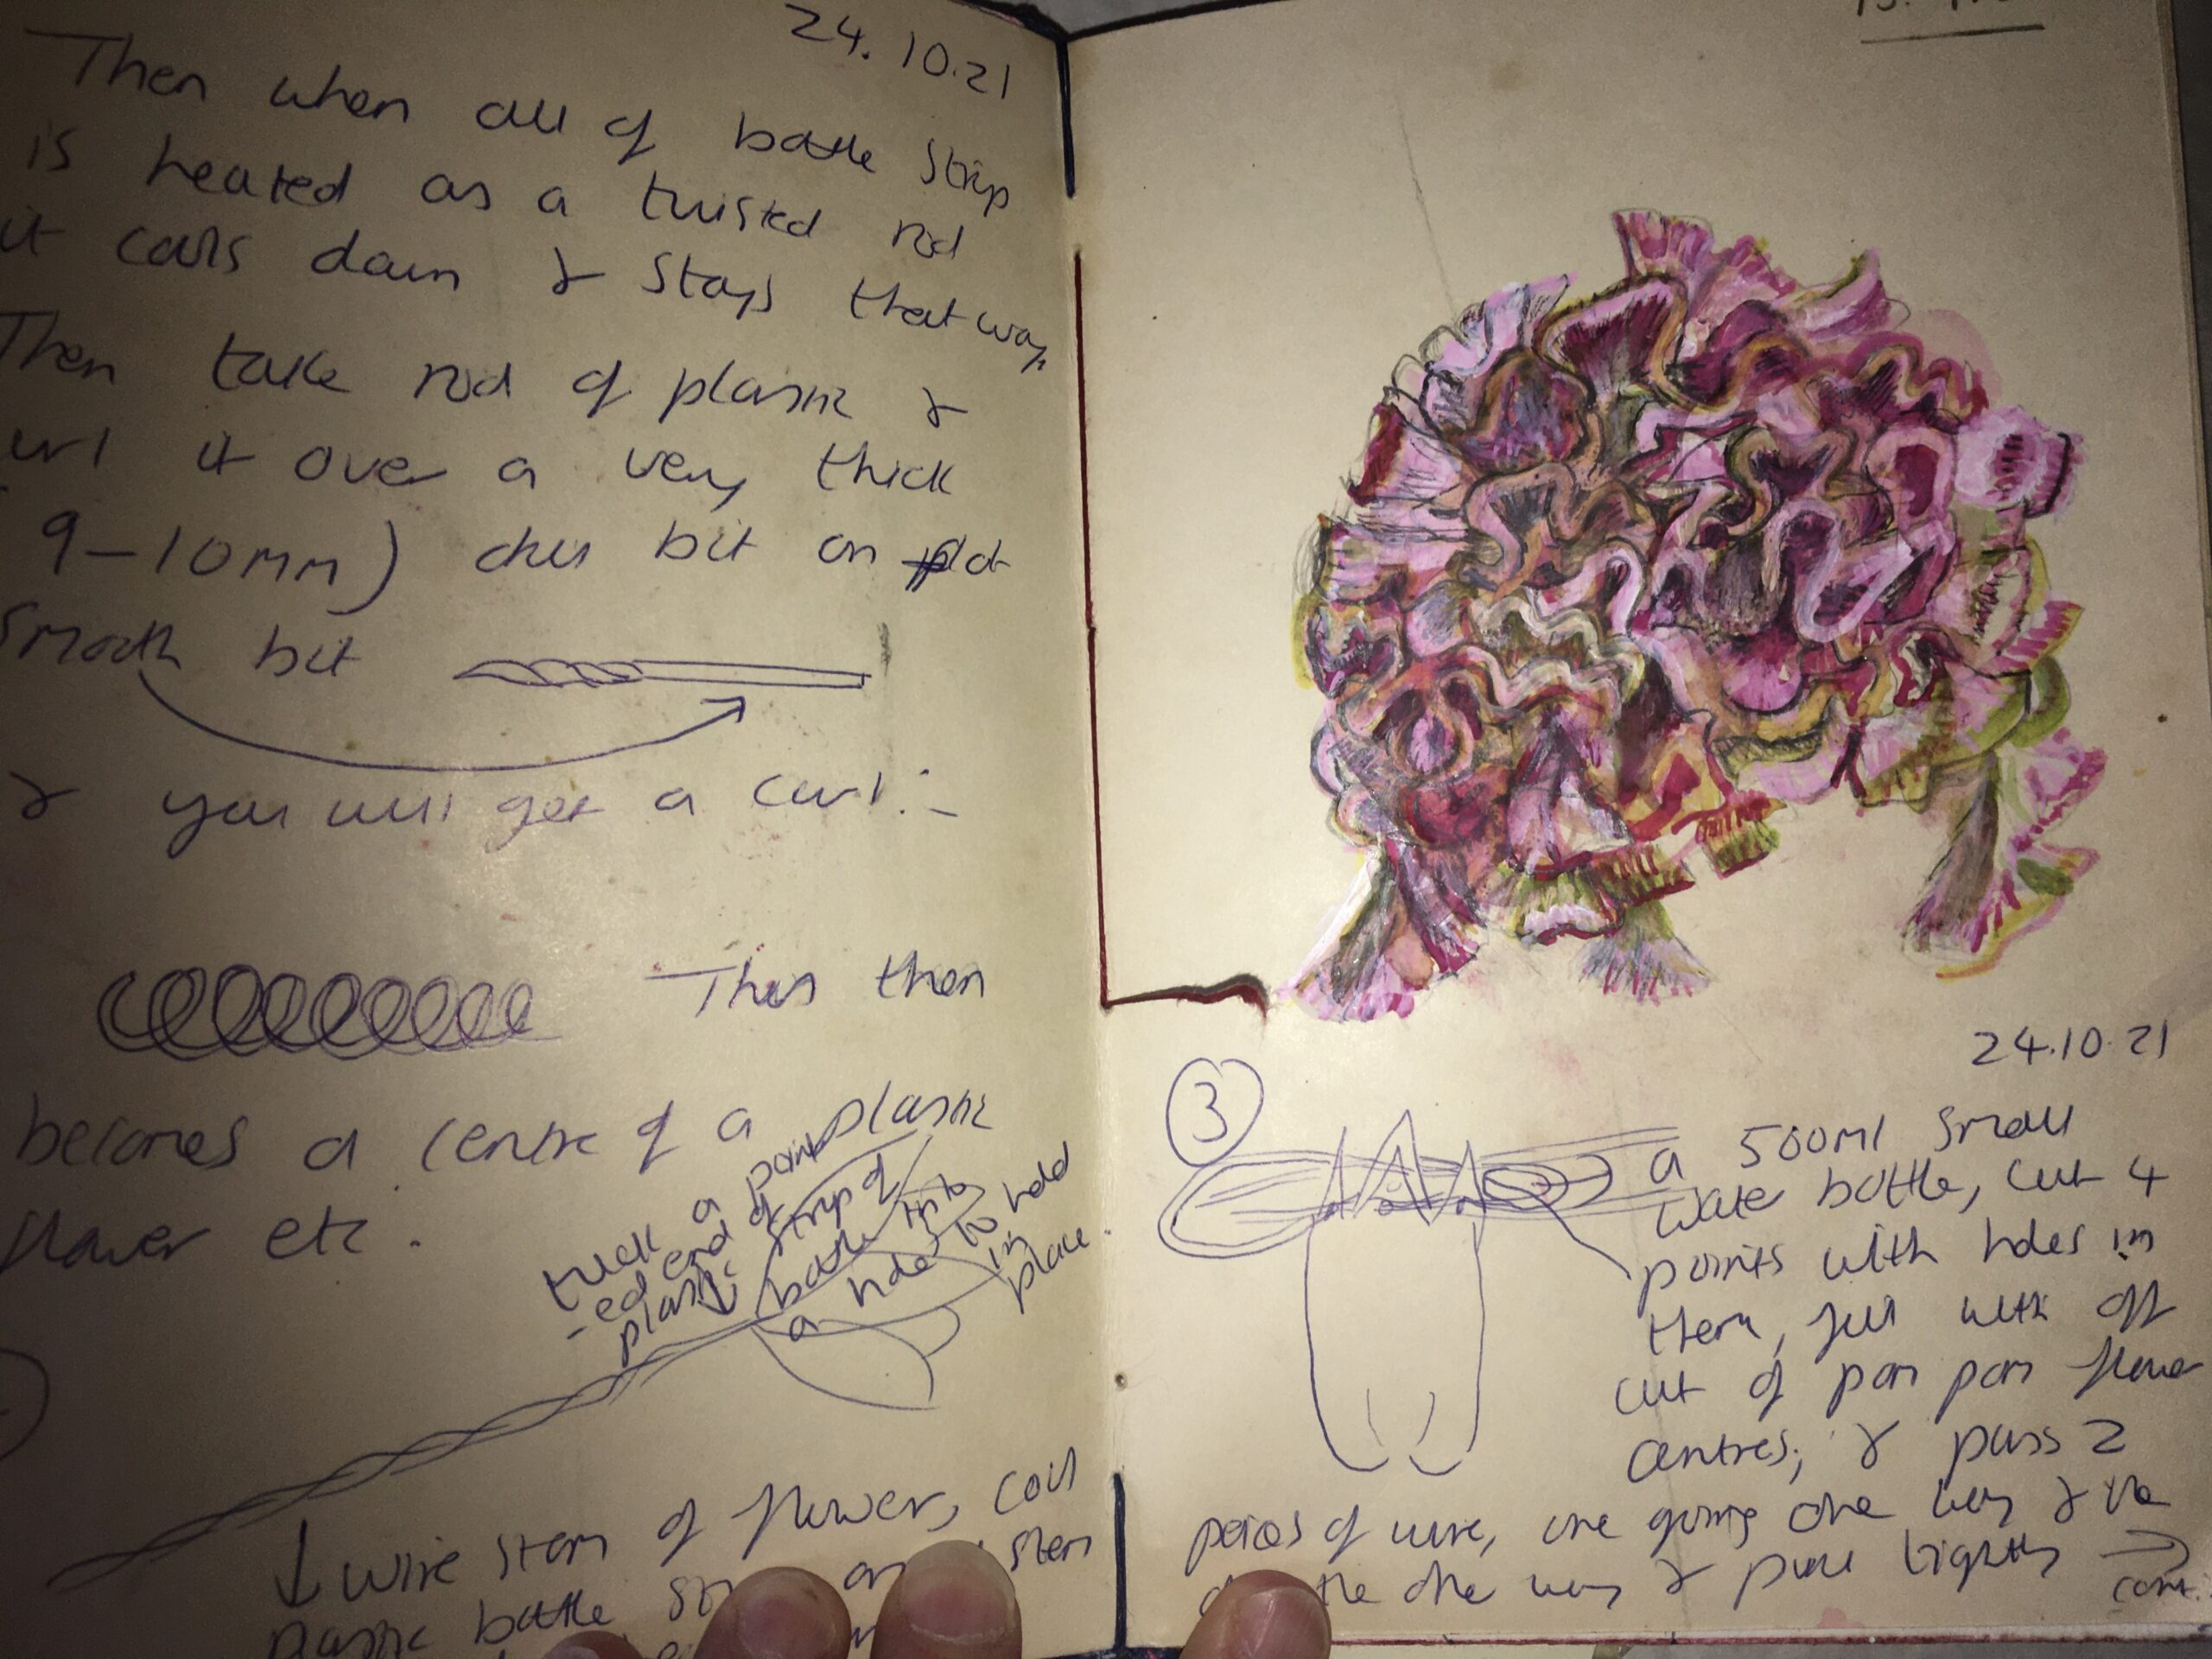 24.10.21
Then when all of bottle strip
is heated as a twisted rod
it coils down & stays that way.
Then take rod of plastic &
url it over a very thick
9-10mm) drill bit on plot
smooth bit
& you will get a curl:-
This then
becomes a centre of a plastic
flower etc.
tuck a point
-ed end of strip of
plastic bottle into
a hole to hold
in place.
wire stem of flower, coil
plastic bottle on stem
24.10.21
3
a 500ml small
water bottle, cut 4
points with holes in
them, fill with off
cut of pom pom flower
centres, & pass 2
peices of wire, one going one way & the
the one way & pull tightly
cont.